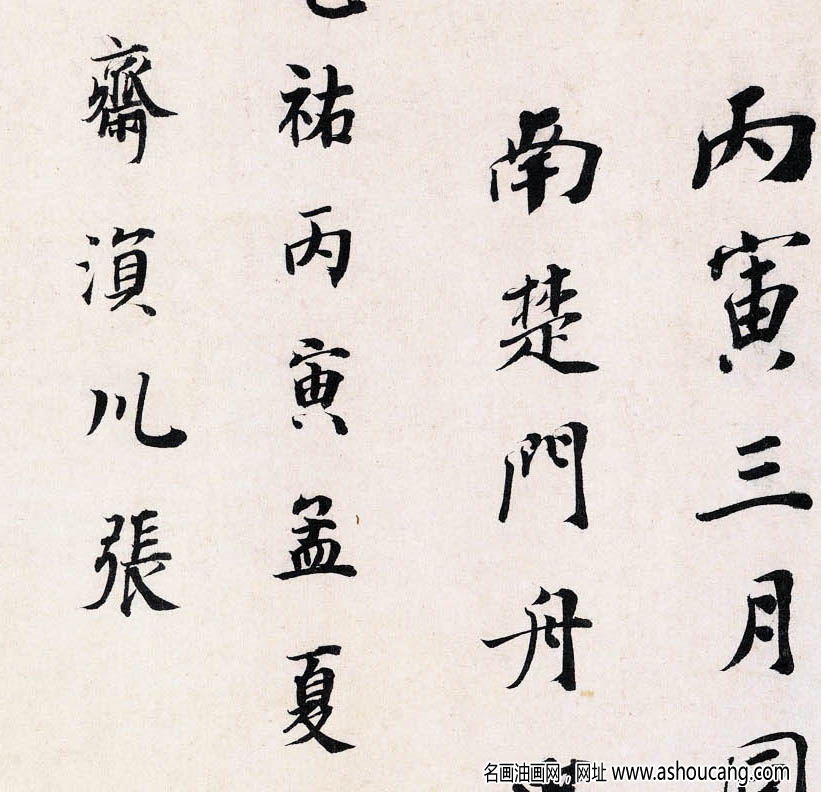 丙寅三月同
南楚門舟
祐丙寅孟夏
齋湏川張
名画油画网，网址 www.ashoucang.com